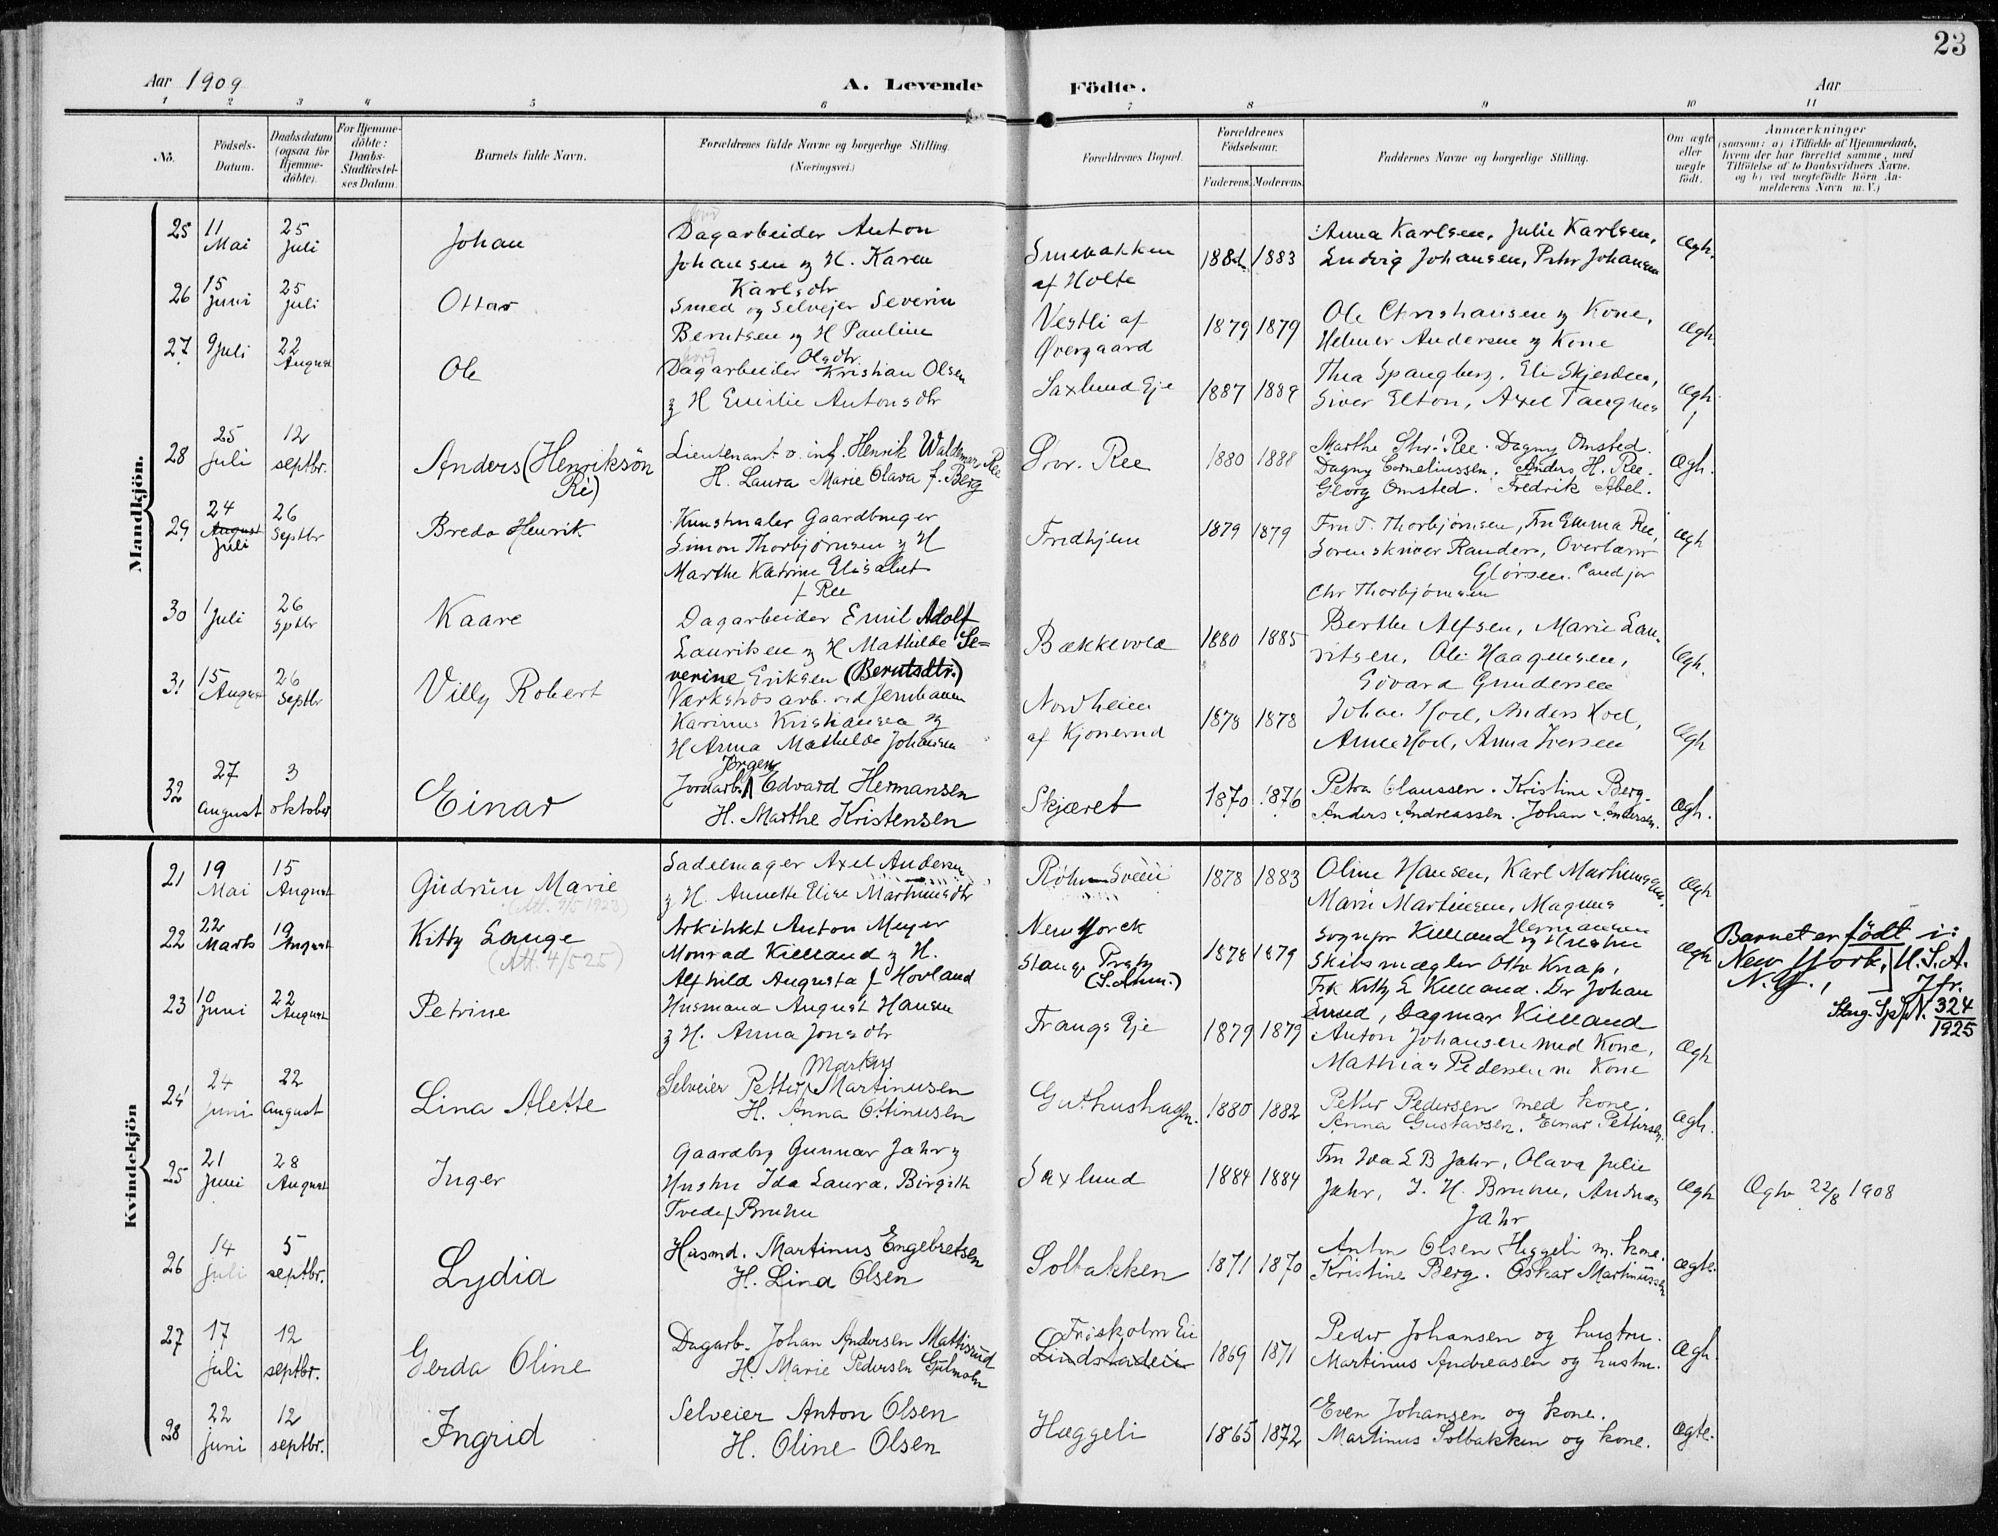 23
Aar 1909
A. Levende Födte.
Aar
1 2 3 4 5 6 7 8 9 10 11
No.
Födsels-Datum.
Daabsdatum (ogsaa for Hjemme-döbte).
For Hjemme-döbte: Daabs-Stadfæstel-ses Datum.
Barnets fulde Navn.
Forældrenes fulde Navne og borgerlige Stilling. (Næringsvei.)
Forældrenes Bopæl.
Forældrenes Födselsaar.
Faderens. Moderens.
Faddernes Navne og borgerlige Stilling.
Om ægte eller uægte födt.
Anmærkninger
(saasom: a) i Tilfælde af Hjemmedaab,
hvem der har forrettet samme, med
Tilföielse af to Daabsvidners Navne.
og b) ved uægtefödte Börn An-
melderens Navn m. V.)
Mandkjön.
25 11 Mai 25 Juli Johan
Dagarbeider Anton
Johansen og H. Karen
Karlsdtr
Smebakken
af Holte
1881 1883
Anna Karlsen, Julie Karlsen,
Ludvig Johansen, Petr Johansen
Ægh.
26 15 Juni 25 Juli Ottar
Smed og Selvejer Severin
Berntsen og H Pauline
Olsdtr.
Vestli af
Øvergaard
1879 1879
Ole Christiansen og Kone,
Helmer Andersen og Kone
Ægh.
27 9 Juli 22 August Ole
Dagarbeider Kristian Olsen
og H Emilie Antonsdtr
Saxlund Eje
1887 1889
Thea Spangberg, Eli Skjerden,
Siver Elton, Axel Tangnes
Ægh.
28 25 Juli 12 septbr. Anders (Henriksön
Ré)
Lieutenant v. inf. Henrik Waldemar Ree
H. Laura Marie Olava f. Berg
Ree
1880 1888
Marthe Ree. Dagny Omsted.
Dagny Corneliussen. Anders H. Ree.
Georg Omsted. Fredrik Abel.
Ægh.
29 24 August Juli 26 Septbr Bredo Henrik
Kunstmaler Gaardbruger
Simon Thorbjørnsen og H
Marthe Katrine Elisabet
f Ree
Fredhjem
1879 1879
Fru T. Thorbjørnsen, Fru Emma Ree,
Sorenskriver Randers, Overlærer
Glørsen. Cand jur
Chr Thorbjørnsen
Ægh
30 1 Juli 26 Sptbr Kaare
Dagarbeider Emil Adolf
Lauritsen og H Mathilde Se=
verine Eriksen (Berntsdtr.)
Bækkevold
1880 1885
Berthe Alfsen, Marie Lau-
ritsen, Ole Haagensen,
Edvard Gundersen
Ægh.
31 15 August 26 Septbr Villy Robert
Værkstedsarb. ved Jernbanen
Karinus Kristiansen og
H Anna Mathilde Johansen
Nordheim
af Kjonerud
1878 1878
Johan Hoel, Anders Hoel,
Anne Hoel, Anna Iversen
Ægh
32 27 august 3 oktober Einar
Jörgen
Jordarb. Edvard Hermansen
H. Marthe Kristensen
Skjæret
1870 1876
Petra Claussen. Kristine Berg.
Anders Andreassen. Johan Andersen.
Ægh.
Kvindekjön
21 19 Mai 15 August Gudrun Marie
(Att. 9/5 1923)
Sadelmager Axel Andersen
og H. Annette Elise Martinusdtr
Røhne Sveen
1878 1883
Oline Hansen, Karl Martinussen.
Marie Martinsen, Magnus
Hermansen
Ægh
22 22 Marts 19 August Kitty Lange
(Att. 4/5 25)
Arkitekt Anton Meyer
Monrad Kielland og H.
Alfhild Augusta f Hovland
New Yorck
Stange Prgj
1878 1879
Sognepr Kielland og Hustru
Skibsmægler Otto Knap,
Frk Kitty L Kielland. Dr Johan
Lund, Dagmar Kielland
Ægh
Barnet er födt i:
New York, U.S.A.
N.Y., Jfr.
324
1925
23 10 Juni 22 August Petrine
Husmand August Hansen
og H. Anna Jonsdtr
Frangs Eje
1879 1879
Anton Johansen med Kone,
Mathias Pedersen m Kone
Ægh
24 24 juni 22 august Lina Alette
Markus
Selveier Petter Martinusen
H. Anna Ottinusen
1880 1882
Petter Pedersen med kone.
Anna Gustavsen. Einar Pettersen.
Ægh.
25 21 Juni 28 August Inger
Gaardbrg Gunnar Jahr og
Hustru Ida Laura. Birgith
Tvede f Bruhn
Saxlund
1884 1884
Fru Ida L B Jahr, Olava Julie
Jahr, J. H. Bruhn, Andreas
Jahr
Ægh
Ægtev 22/8 1908
26 14 Juli 5 septbr. Lydia
Husmd. Martinus Engebretsen
H. Lina Olsen
Solbakken
1871 1870
Anton Olsen Heggeli m. kone.
Kristine Berg. Oskar Martinussen
ægte.
27 17 juli 12 septbr. Gerda Oline
Dagarb. Johan Andersen Mattisrud
H. Marie Pedersen
Friskolm Eie
1869 1871
Peder Johansen og hustru.
Martinus Andreasen og hustru.
Ægh.
28 22 juni 12 septbr. Ingrid
Selveier Anton Olsen
H. Oline Olsen
Hæggeli
1865 1872
Even Johansen og kone.
Martinus Solbakken og kone.
Ægte.